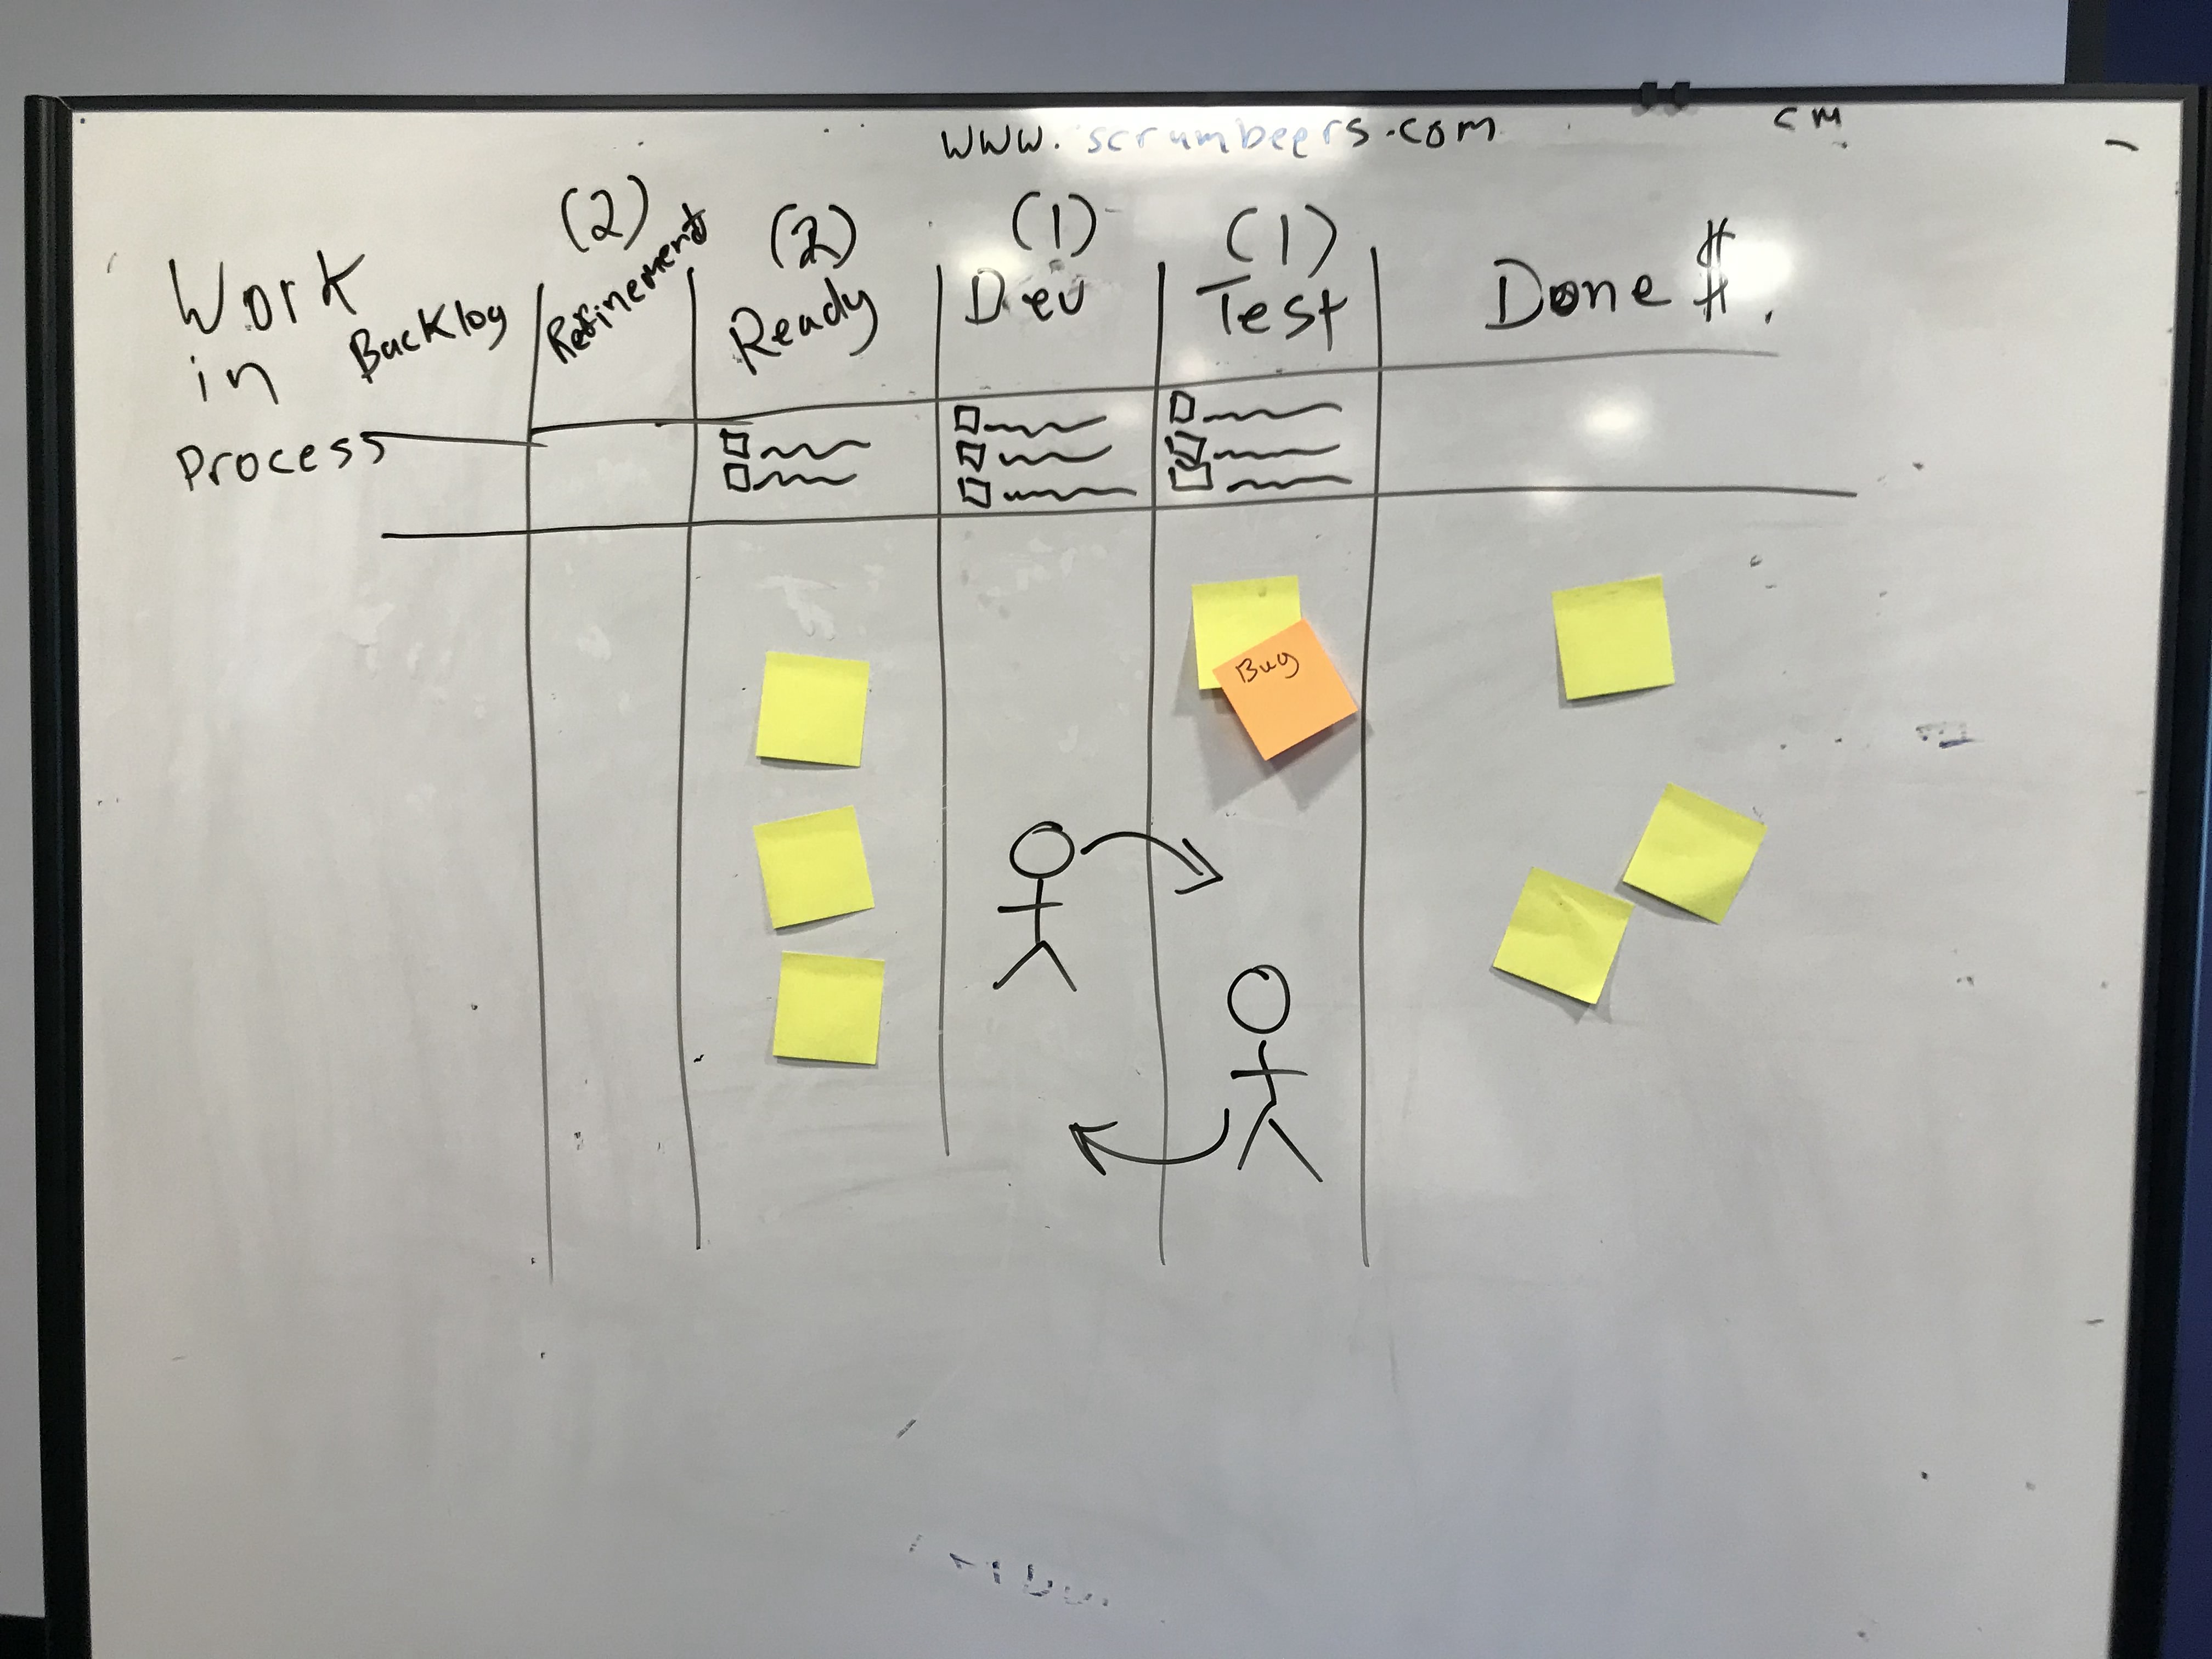 www.scrumbeers.com
cm
(2)
(2)
(1)
(1)
Work
in
Process
Backlog
Refinement
Ready
Dev
Test
Done $.
Bug